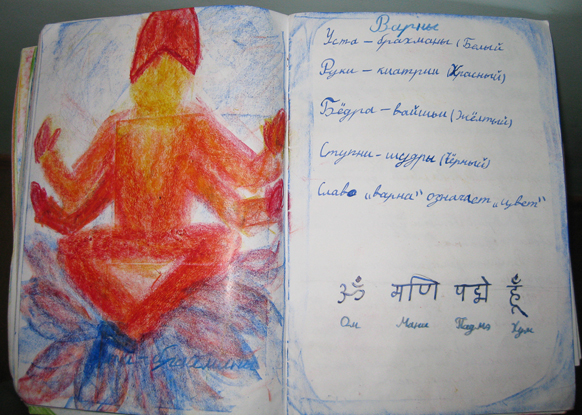 Варны
Уста – брахманы (Белый
Руки – кшатрии (Красный)
Бёдра – вайшьи (Жёлтый)
Ступни – шудры (Чёрный)
Слово „варна" означает „цвет"
ॐ मणि पद्मे हूँ
Ом Мани Падмэ Хум